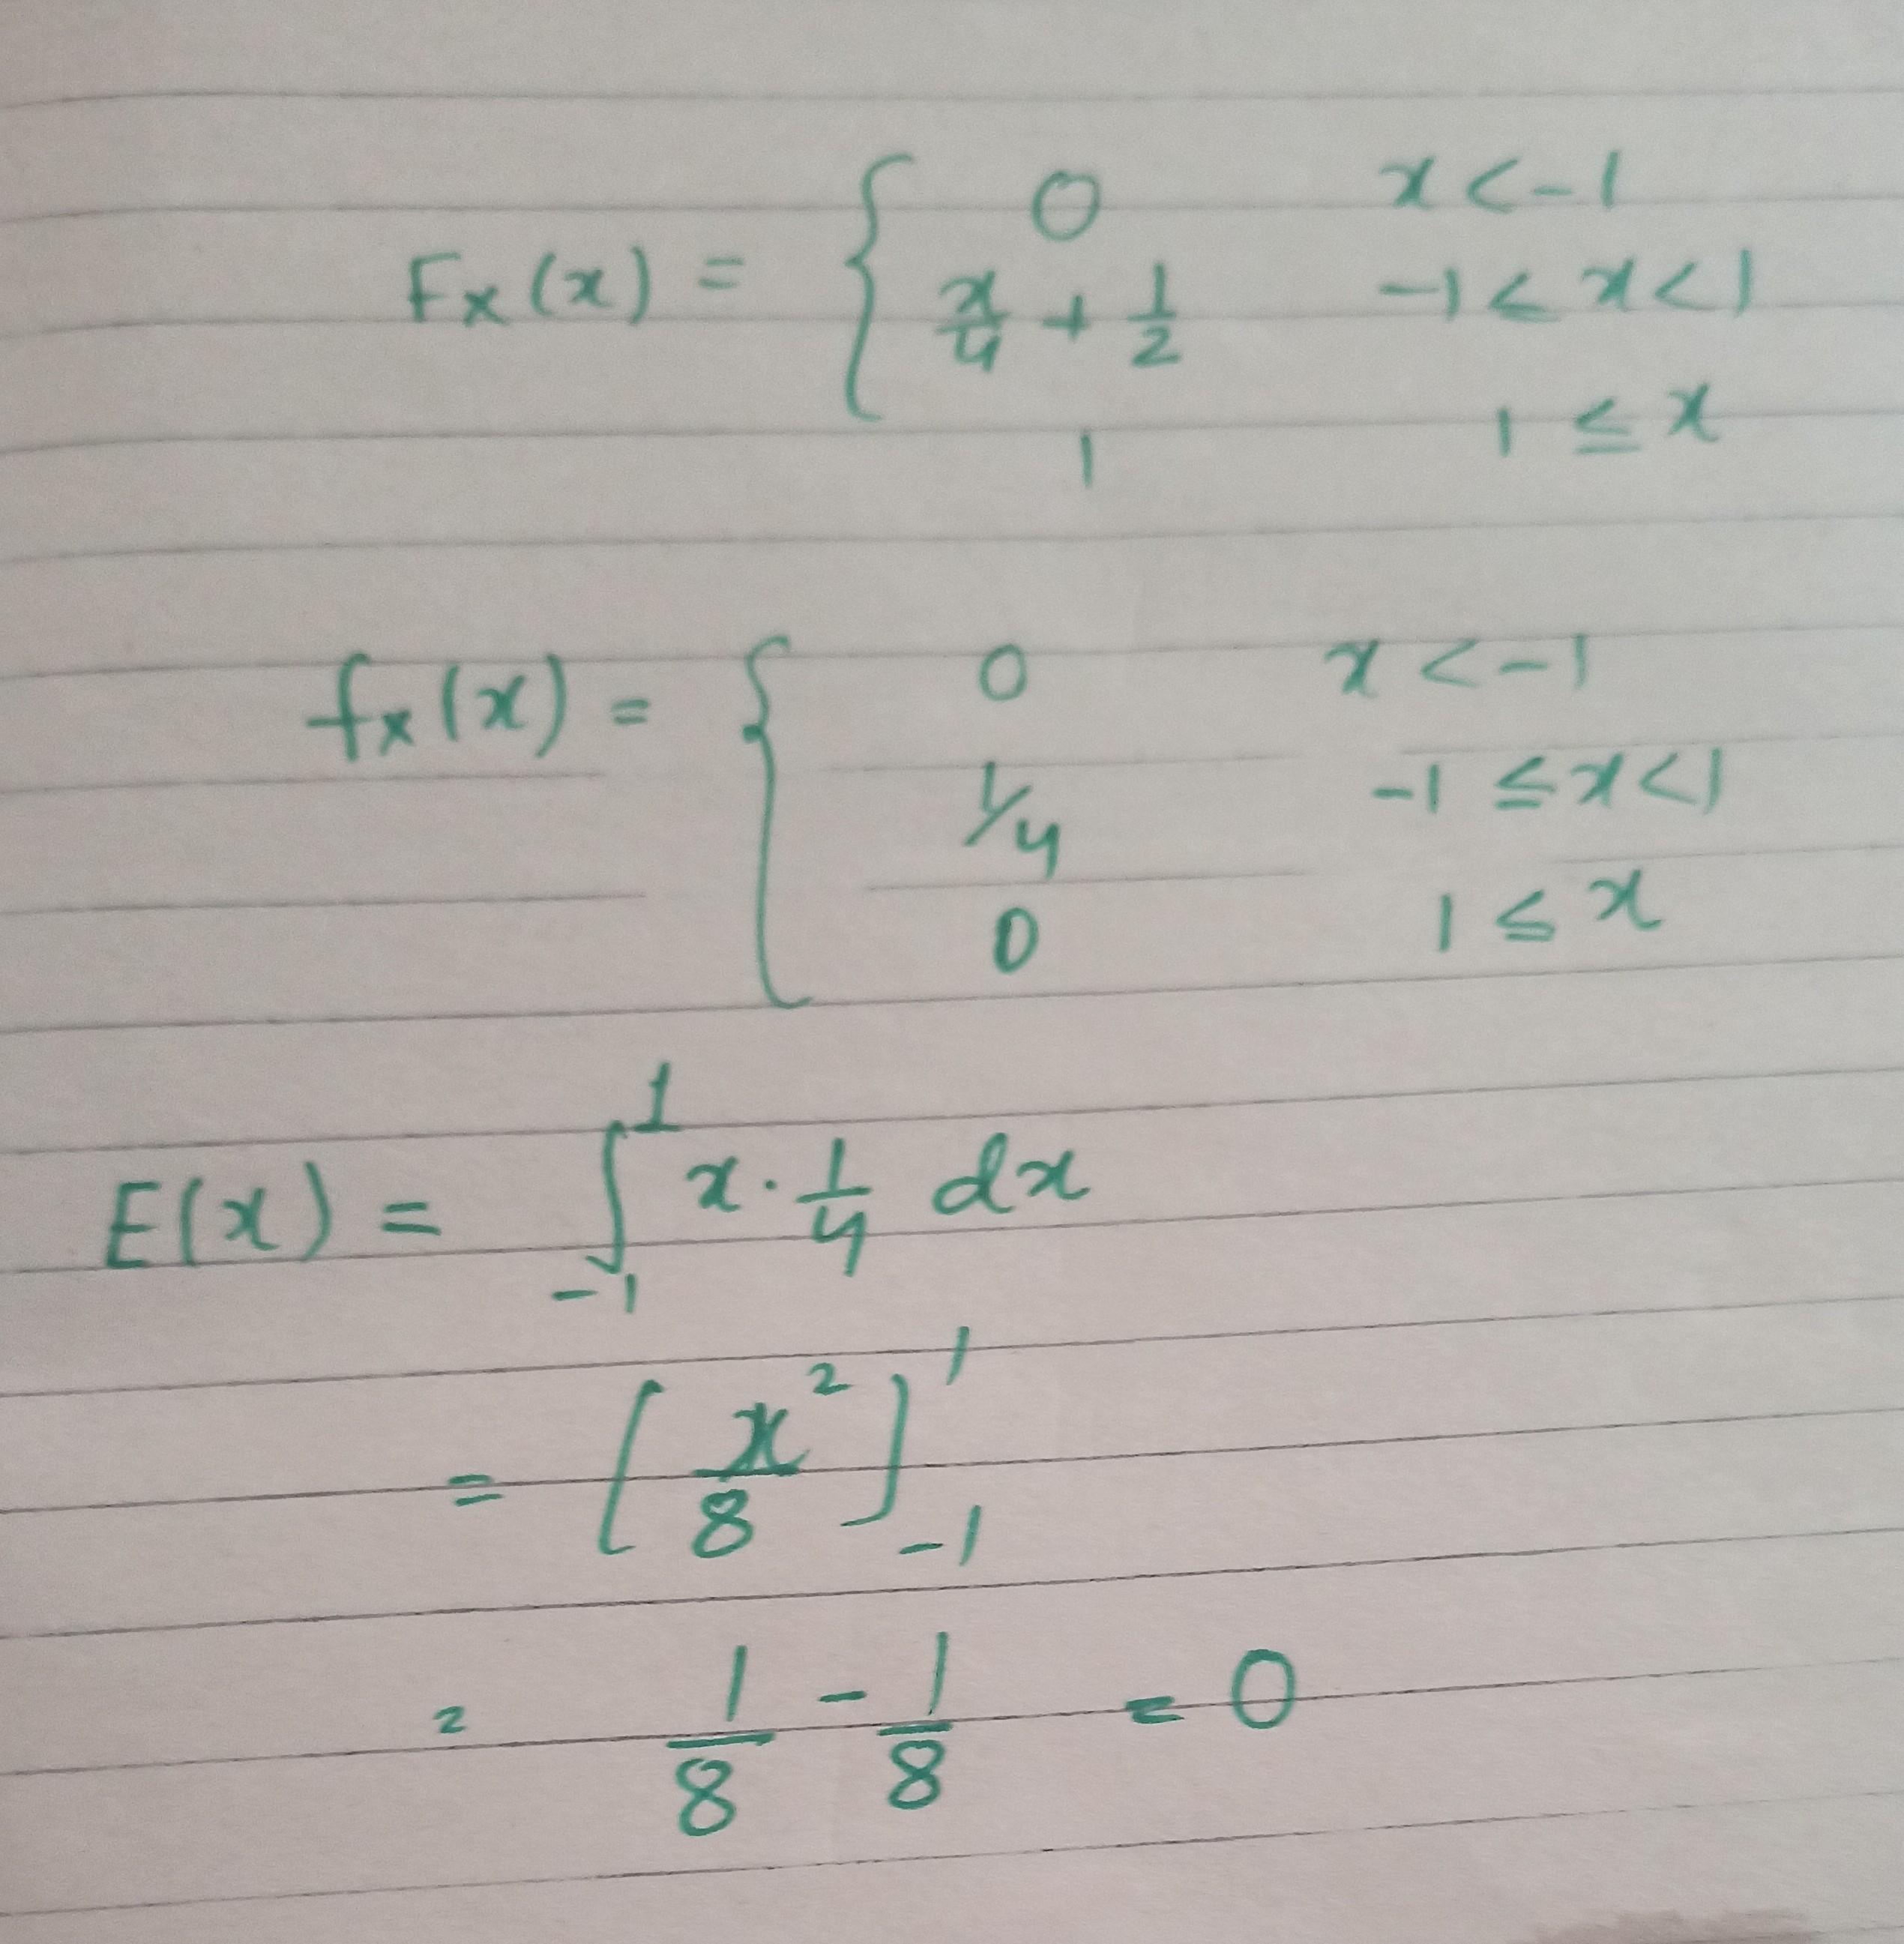 Fx(x) = { 0 x < -1
x/4 + 1/2 -1 ≤ x < 1
1 1 ≤ x
fx(x) = { 0 x < -1
1/4 -1 ≤ x < 1
0 1 ≤ x
E(x) = ∫_{-1}^{1} x · 1/4 dx
= [x²/8]_{-1}^{1}
= 1/8 - 1/8 = 0